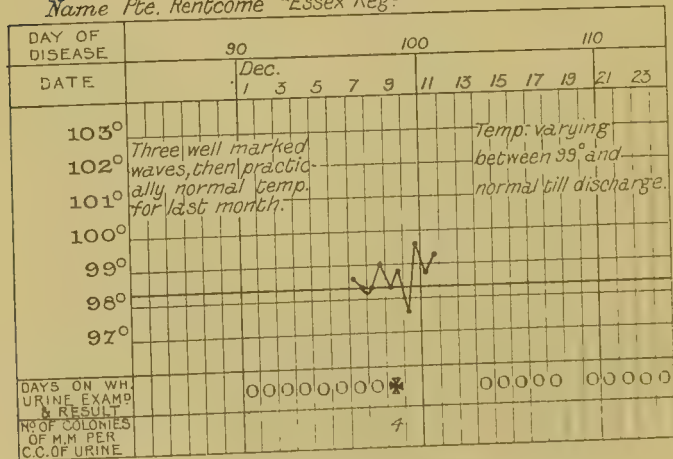 Name Pte. Rentcome "Essex Reg.
DAY OF DISEASE 90 100 110
DATE Dec. 1 3 5 7 9 11 13 15 17 19 21 23
103°
102°
101°
100°
99°
98°
97°
Three well marked
waves, then practic-
ally normal temp.
for last month.
Temp: varying
between 99° and
normal till discharge.
DAYS ON WH.
URINE EXAMD
& RESULT
OOOOOOOO✠ OOOOO OOOOO
NO OF COLONIES
OF M.M PER
C.C. OF URINE
4